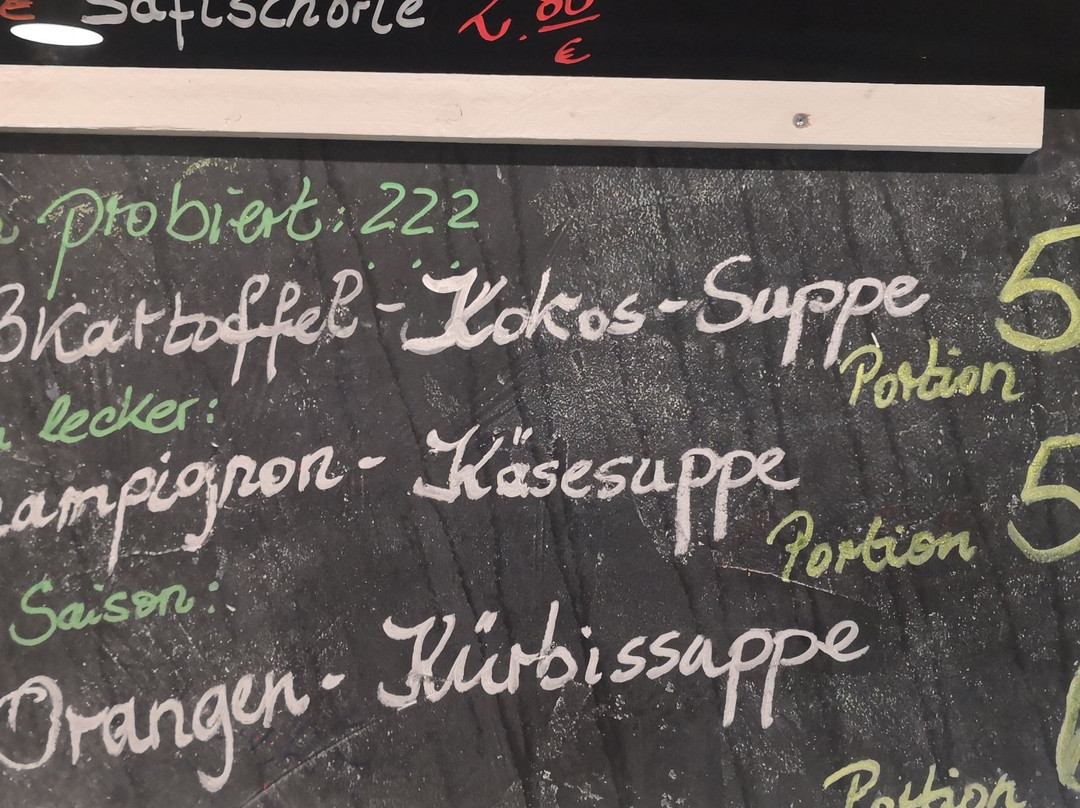 € Saftschorle 2.80 €
probiert: ???
ßkartoffel-Kokos-Suppe 5
Portion
lecker:
hampignon-Käsesuppe 5
Portion
Saison:
Orangen-Kürbissuppe
Portion